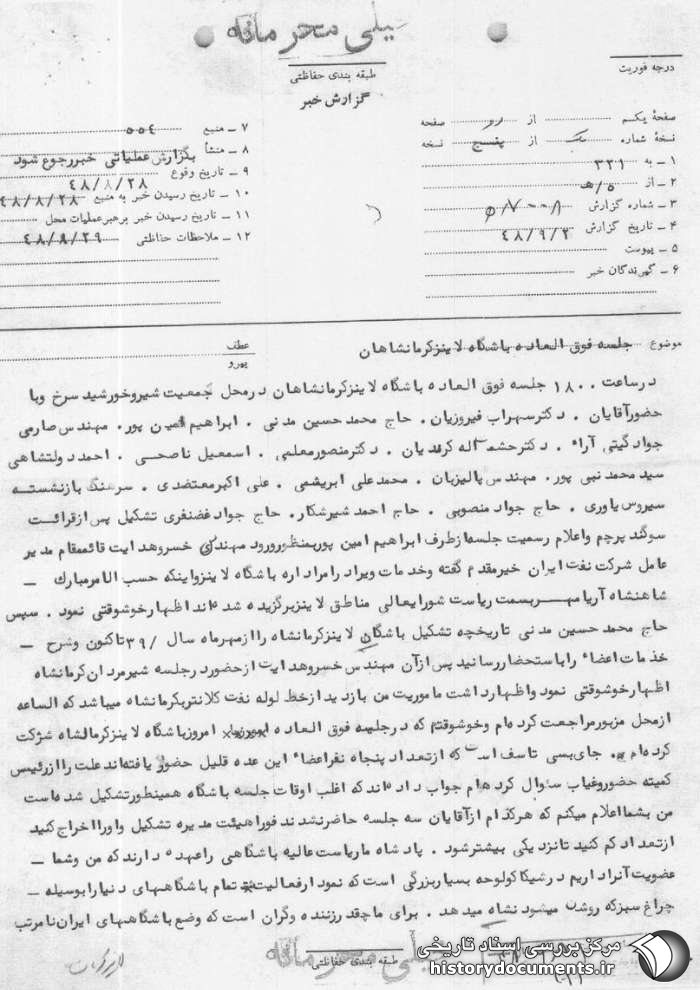 خیلی محرمانه
طبقه بندی حفاظتی
گزارش خبر
درجه فوریت
صفحهٔ یکم از دو صفحه
نسخهٔ شماره یک از پنج نسخه
۱ ـ به ۳۳۱
۲ ـ از ۵/هـ
۳ ـ شماره گزارش
۴ ـ تاریخ گزارش ۴۸/۹/۲
۵ ـ پیوست
۶ ـ گیرندگان خبر
۷ ـ منبع ۵۵۴
۸ ـ منشأ بگزارش عملیاتی خبر رجوع شود
۹ ـ تاریخ وقوع ۴۸/۸/۲۸
۱۰ ـ تاریخ رسیدن خبر به منبع ۴۸/۸/۲۸
۱۱ ـ تاریخ رسیدن خبر برهبر عملیات محل
۱۲ ـ ملاحظات حفاظتی ۴۸/۸/۲۹
موضوع جلسه فوق العاده باشگاه لاینز کرمانشاهان
عطف
پیرو
در ساعت ۱۸۰۰ جلسه فوق العاده باشگاه لاینز کرمانشاهان در محل جمعیت شیر و خورشید سرخ و با
حضور آقایان . دکتر سهراب فیروزیان . حاج محمد حسین مدنی . ابراهیم امین پور . مهندس صارمی
جواد گیتی آراء . دکتر حشمت اله کرندیان . دکتر منصور معلمی . اسمعیل ناصحی . احمد دولتشاهی
سید محمد نبی پور . مهندس پالیزبان . محمد علی ابریشمی . علی اکبر معتضدی . سرهنگ بازنشسته
سیروس یاوری . حاج جواد منصوبی . حاج احمد شیرشکار . حاج جواد غضنفری تشکیل پس از قرائت
سوگند پرچم و اعلام رسمیت جلسه از طرف ابراهیم امین پور بمنظور ورود مهندس خسرو هدایت قائممقام مدیر
عامل شرکت نفت ایران خیر مقدم گفته و خدمات ویرا در امر اداره باشگاه لاینز و اینکه حسب الامر مبارک ـ
شاهنشاه آریامهر بسمت ریاست شورایعالی مناطق لاینز برگزیده شده‌اند اظهار خوشوقتی نمود . سپس
حاج محمد حسین مدنی تاریخچه تشکیل باشگاه لاینز کرمانشاه را از مهر ماه سال ۳۹/ تاکنون و شرح ـ
خدمات اعضاء را باستحضار رسانید پس از آن مهندس خسرو هدایت از حضور در جلسه شیرمردان کرمانشاه
اظهار خوشوقتی نمود و اظهار داشت ماموریت من بازدید از خط لوله نفت کلانتر بکرمانشاه میباشد که الساعه
از محل مزبور مراجعت کرده‌ام و خوشوقتم که در جلسه فوق العاده امروز باشگاه لاینز کرمانشاه شرکت
کرده‌ام . جای بسی تاسف است که از تعداد پنجاه نفر اعضاء این عده قلیل حضور یافته‌اند علت را از رئیس
کمیته حضور و غیاب سئوال کرده‌ام جواب داده‌اند که اغلب اوقات جلسه باشگاه همینطور تشکیل شده است
من بشما اعلام میکنم که هر کدام از آقایان سه جلسه حاضر نشدند فورا هیئت مدیره تشکیل و او را اخراج کنید
از تعداد کم کنید تا نزدیکی بیشتر شود . پادشاه ما ریاست عالیه باشگاهی را عهده دارند که من و شما ـ
عضویت آنرا داریم در شیکاگو لوحه بسیار بزرگی است که نمودار فعالیت تمام باشگاههای دنیا را بوسیله ـ
چراغ سبز که روشن میشود نشان میدهد . برای ما چقدر زننده و گران است که وضع باشگاههای ایران نامرتب
خیلی محرمانه
طبقه بندی حفاظتی
مرکز بررسی اسناد تاریخی
historydocuments.ir